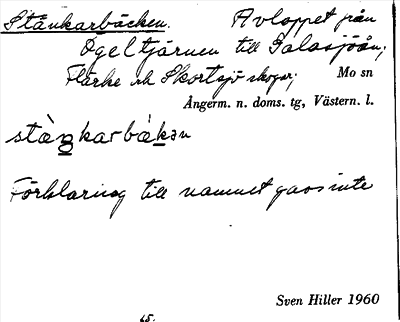 Stånkarbäcken. Avloppet från
Ögeltjärnen till Galasjöån;
Flärke och Skortsjö skogar; Mo sn
Ångerm. n. doms. tg, Västern. l.
stàŋkarbàkən
Förklaring till namnet gavs inte
Sven Hiller 1960
65.